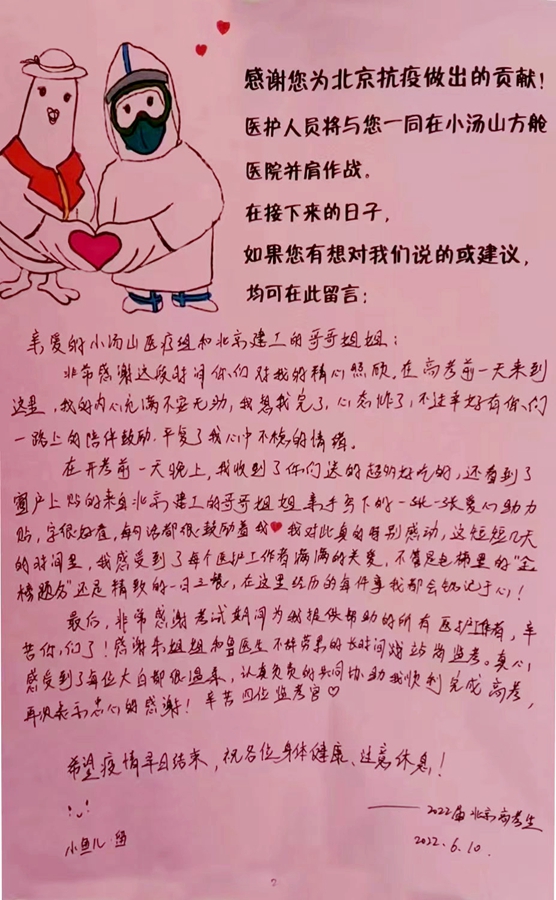 感谢您为北京抗疫做出的贡献!
医护人员将与您一同在小汤山方舱
医院并肩作战。
在接下来的日子,
如果您有想对我们说的或建议,
均可在此留言:
亲爱的小汤山医疗组和北京建工的哥哥姐姐:
非常感谢这段时间你们对我的精心照顾。在高考前一天来到
这里,我的内心充满不安无助,我想我完了,心态炸了,不过幸好有你们
一路上的陪伴鼓励,平复了我心中不稳的情绪。
在开考前一天晚上,我收到了你们送的超多好吃的,还看到了
窗户上贴的来自北京建工的哥哥姐姐亲手写下的一张一张爱心助力
贴,字很好看,每句话都很鼓励着我❤我对此真的特别感动,这短短几天
的时间里,我感受到了每个医护工作者满满的关爱,不管是包裹里的"金
榜题名"还是精致的一日三餐,在这里经历的每件事我都会铭记于心!
最后,非常感谢考试期间为我提供帮助的所有医护工作者,辛
苦你们了!感谢朱姐姐和鲁医生不辞劳累的长时间站岗监考。真心
感受到了每位大白都很温柔,认真负责的共同协助我顺利完成高考,
再次表示忠心的感谢!辛苦四位监考官♡
希望疫情早日结束,祝各位身体健康、注意休息!
——2022届北京高考生
小鱼儿
2022.6.10.